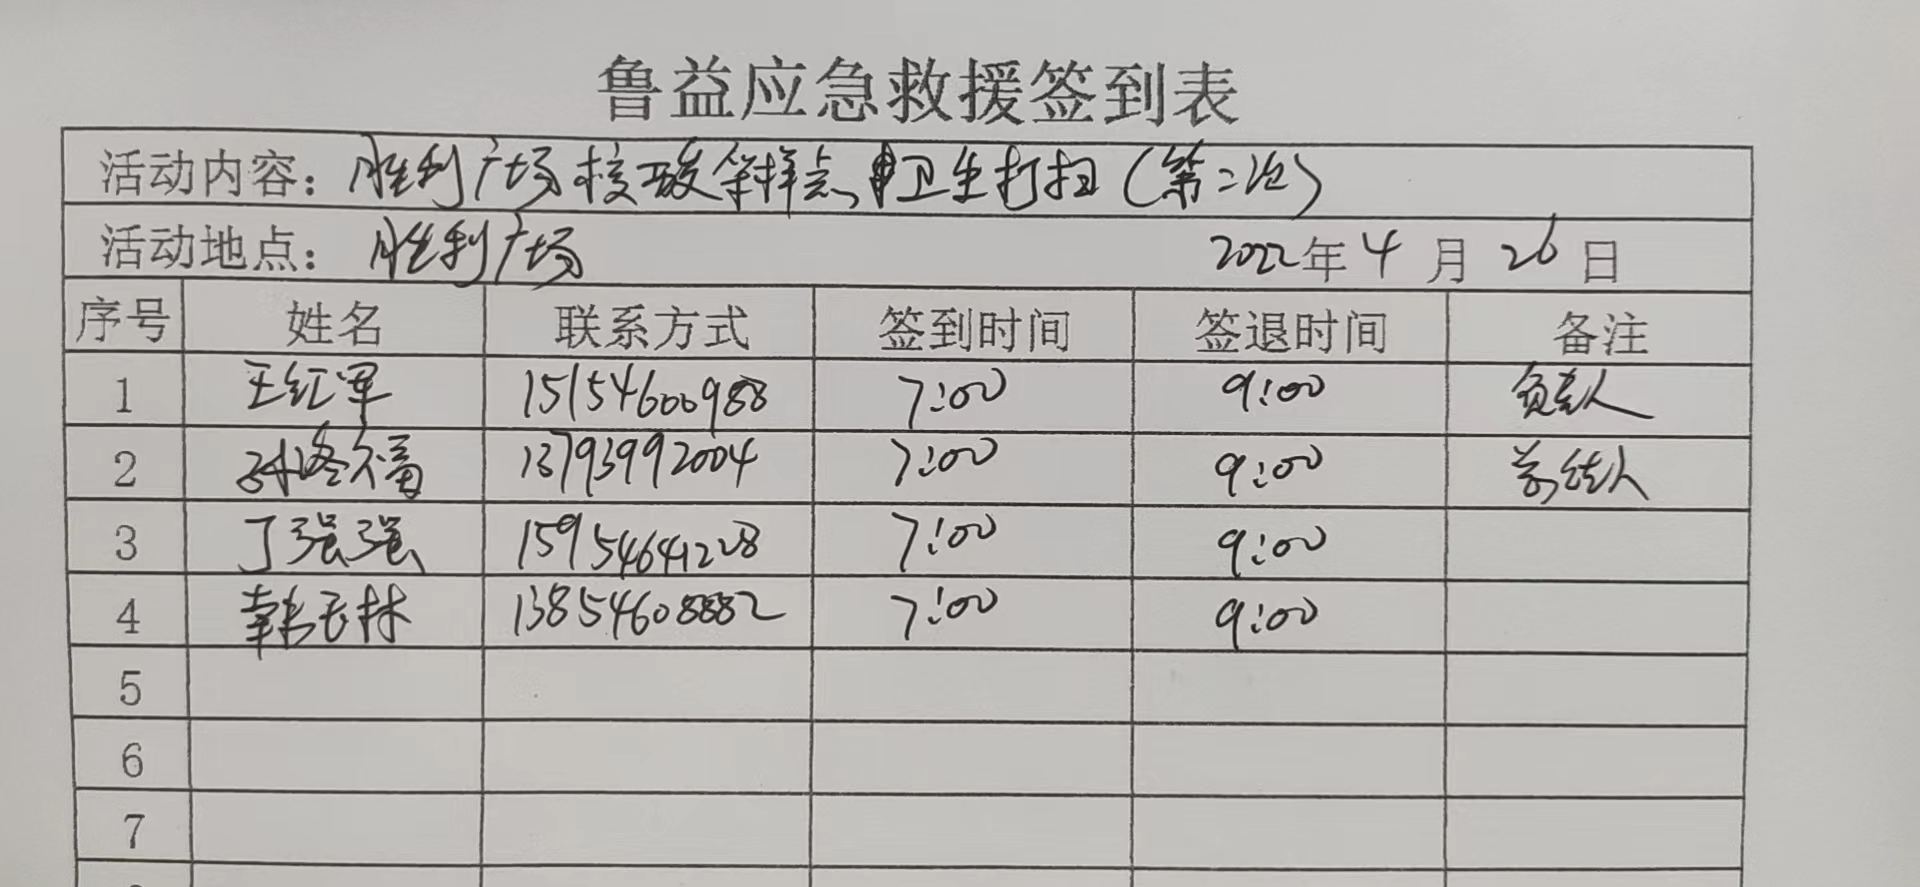 鲁益应急救援签到表
活动内容：胜利广场核酸采样点卫生打扫（第二次）
活动地点：胜利广场 2022年4月26日
序号 姓名 联系方式 签到时间 签退时间 备注
1 王红军 15154600988 7:00 9:00 负责人
2 13793992004 7:00 9:00
3 丁强强 15954641228 7:00 9:00
4 韩玉林 13854608882 7:00 9:00
5
6
7